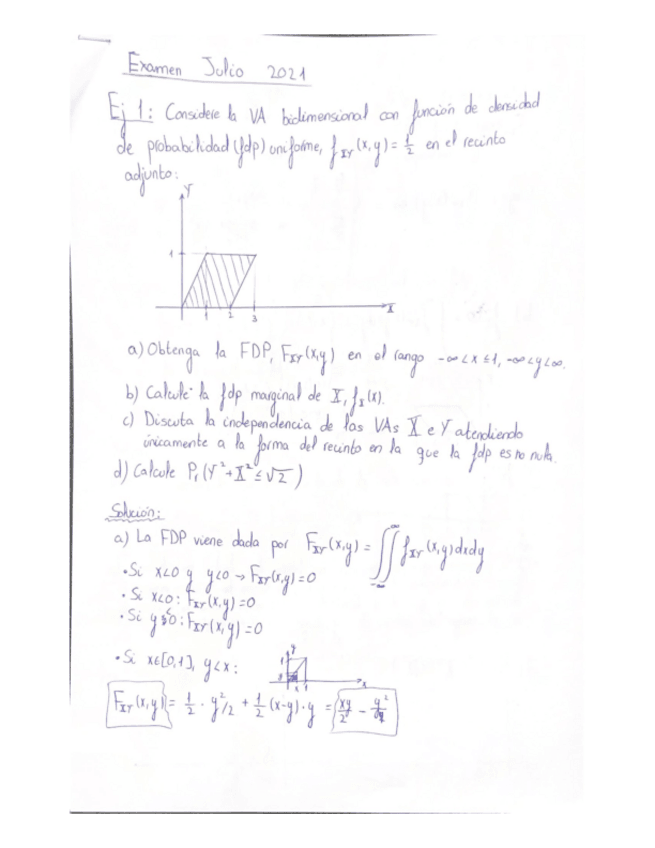 Examen Julio 2021
Ej 1: Considere la VA bidimensional con función de densidad
de probabilidad (fdp) uniforme, fXY(x,y) = 1/2 en el recinto
adjunto:
Y
1
1 2 3 X
a) Obtenga la FDP, FXY(x,y) en el rango -∞<x≤1, -∞<y<∞.
b) Calcule la fdp marginal de X, fX(x).
c) Discuta la independencia de las VAs X e Y atendiendo
únicamente a la forma del recinto en la que la fdp es no nula.
d) Calcule Pr(Y²+X² ≤ √2)
Solución:
a) La FDP viene dada por FXY(x,y) = ∬ fXY(x,y)dxdy
∞
-∞
• Si x<0 y y<0 → FXY(x,y)=0
• Si x<0: FXY(x,y)=0
• Si y≤0: FXY(x,y)=0
• Si x∈[0,1], y<x:
y
1
x 1 x
FXY(x,y) = 1/2 · y²/2 + 1/2 (x-y)·y = xy/2 - y²/4